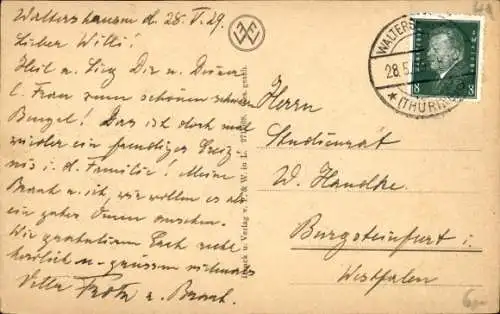 Waltershausen d. 28. V. 29.
Lieber Willi!
Heil u. Sieg Dir u. Deiner
l. Frau zum schönen
Bengel! Das ist doch mal
wieder ein freudiges Ereig-
nis i. d. Familie! Meine
Braut u. ich, wir wollen es als
ein gutes Omen ansehen.
Wir gratulieren Euch recht
herzlich u. grüssen vielmals
Fritz u. Braut.
Druck u. Verlag v. & W. in L.
WALTERS
28.5.
(THÜRING
8 8
Herrn
Studienrat
W. Handke.
Burgsteinfurt i.
Westfalen